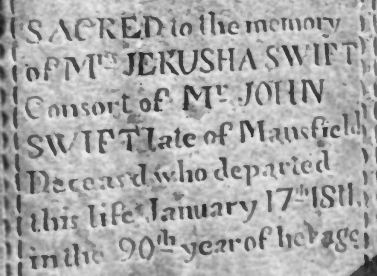 SACRED to the memory
of Mrs JERUSHA SWIFT
Consort of Mr. JOHN
SWIFT late of Mansfield
Deceasd who departed
this life January 17th 1811.
in the 90th year of her age